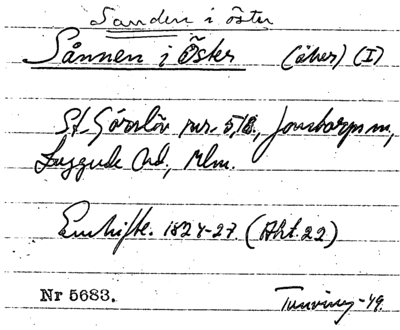 Sanden i öster
Sånnen i Öster (åker) (I)
St. Görslöv nr. 5,18, Jonstorps sn,
Luggude hd, Mlm.
Enskifte. 1824-27. (Akt. 22)
Nr 5683.
-49.